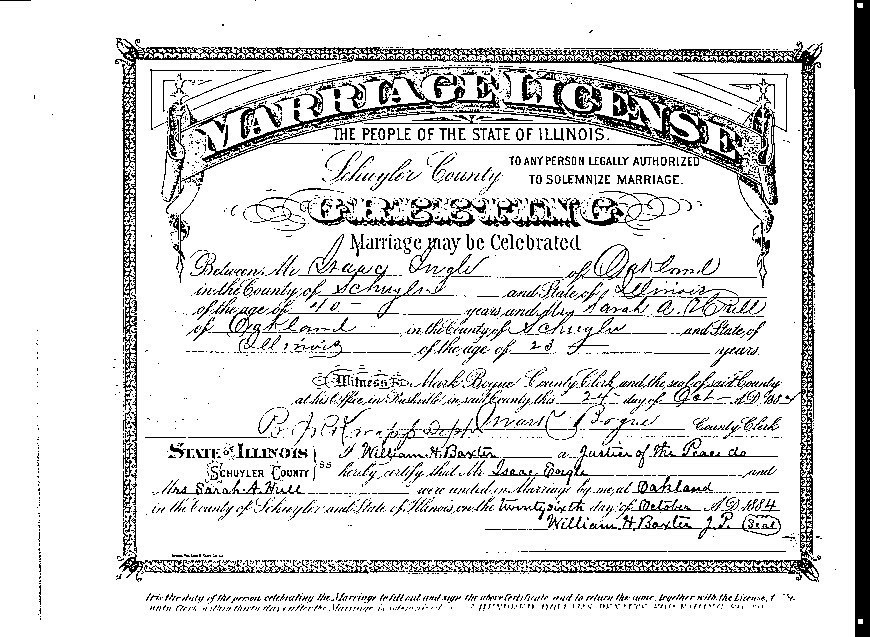 MARRIAGE LICENSE
THE PEOPLE OF THE STATE OF ILLINOIS.
Schuyler County
TO ANY PERSON LEGALLY AUTHORIZED
TO SOLEMNIZE MARRIAGE.
GREETING
Marriage may be Celebrated
Between Mr Isaac Ingle of Oakland
in the County of Schuyler and State of Illinois
of the age of 40 years, and Mrs Sarah A.
of Oakland in the County of Schuyler and State of
Illinois of the age of 23 years.
Witness Mark Bogue County Clerk and the seal of said County
at his Office in Rushville in said County this 24 day of Oct A.D. 1884
Mark Bogue County Clerk
STATE of ILLINOIS } ss I William H. Baxter a Justice of the Peace do
SCHUYLER COUNTY hereby certify that Mr Isaac and
Mrs Sarah A. Hull were united in Marriage by me, at Oakland
in the County of Schuyler and State of Illinois, on the twenty sixth day of October A.D. 1884
William H. Baxter J.P. Seal
It is the duty of the person celebrating the Marriage to fill out and sign the above Certificate and to return the same, together with the License,